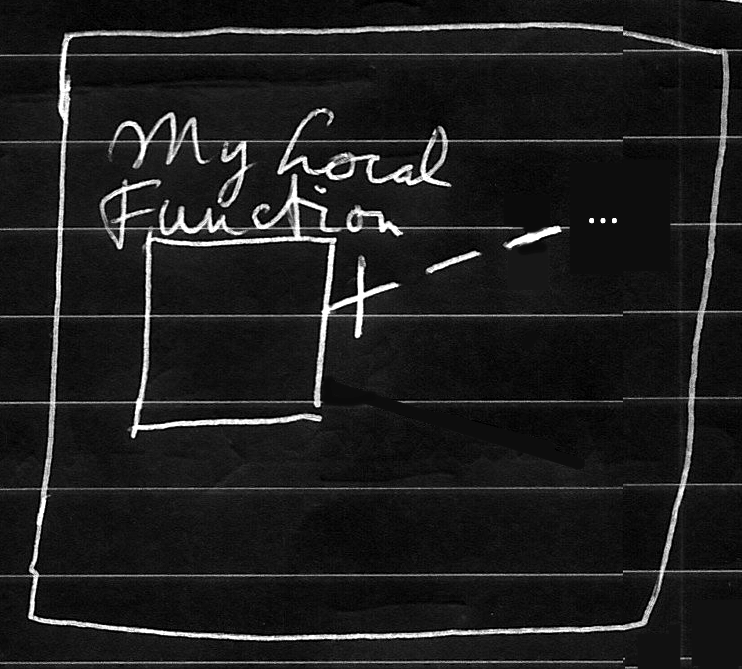 My Local
Function
...